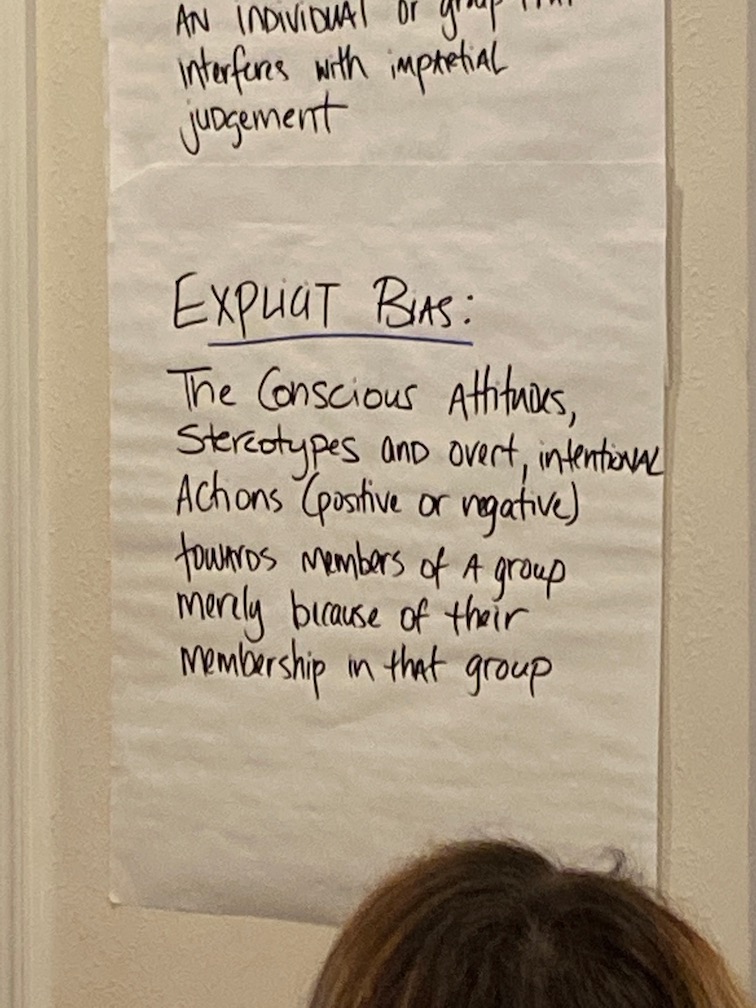 AN INDIVIDUAL or group that
interferes with impartial
judgement
EXPLICIT BIAS:
The Conscious Attitudes,
Stereotypes and overt, intentional
Actions (positive or negative)
towards members of A group
merely because of their
membership in that group